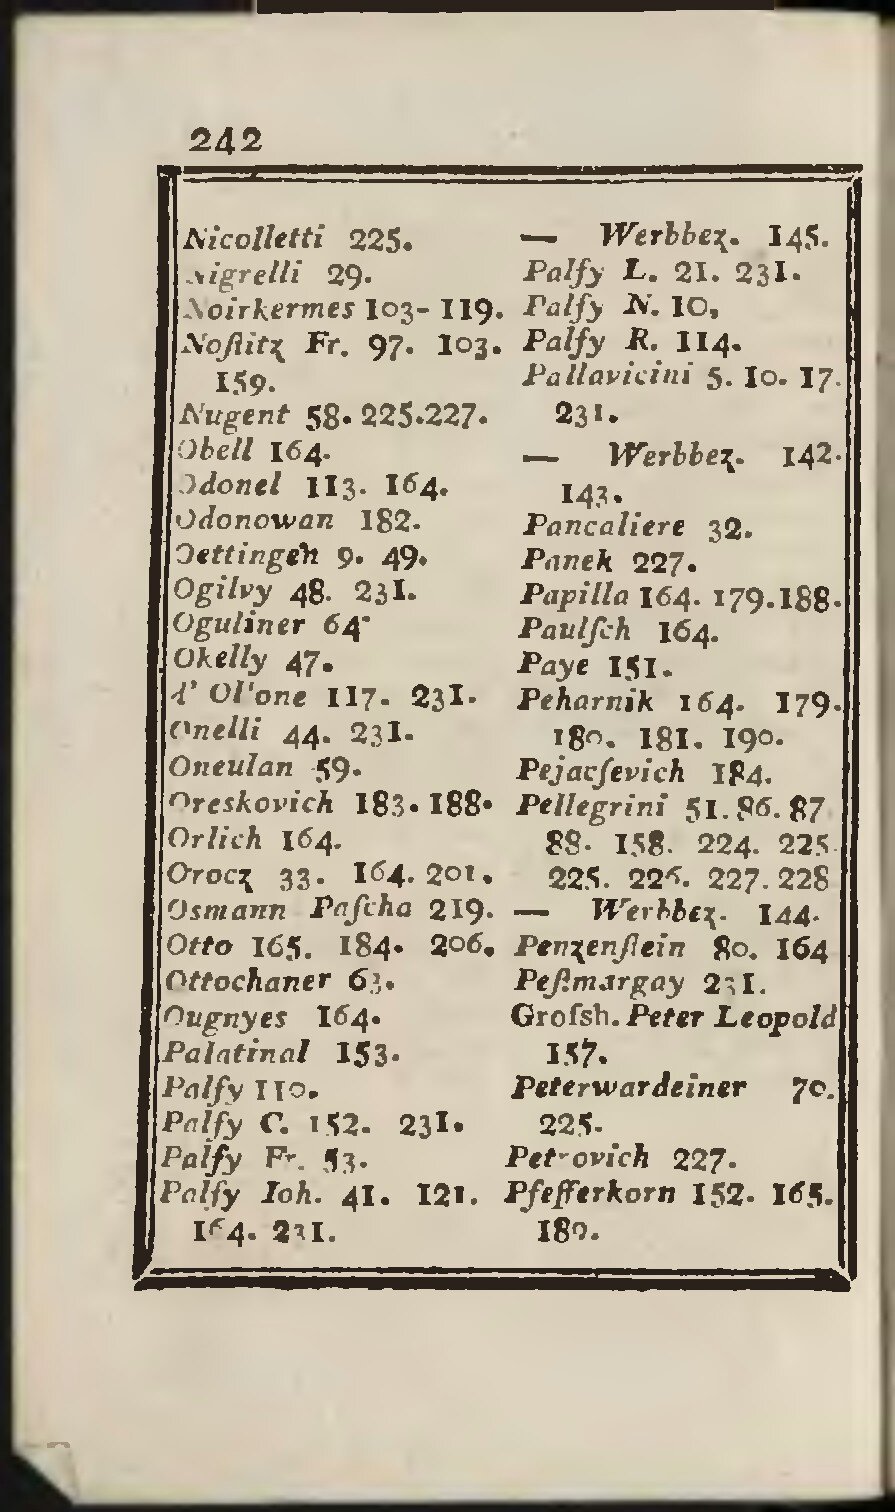 242
Nicolletti 225.
Nigrelli 29.
Noirkermes 103- 119.
Noſtitz Fr. 97. 103.
159.
Nugent 58. 225.227.
Obell 164.
Odonel 113. 164.
Odonowan 182.
Oettingen 9. 49.
Ogilvy 48. 231.
Oguliner 64.
Okelly 47.
d' Ol'one 117. 231.
Onelli 44. 231.
Oneulan 59.
Oreskovich 183. 188.
Orlich 164.
Orocz 33. 164. 201.
Osmann Paſcha 219.
Otto 165. 184. 206.
Ottochaner 63.
Ougnyes 164.
Palatinal 153.
Palfy 110.
Palfy C. 152. 231.
Palfy Fr. 53.
Palfy Ioh. 41. 121.
164. 231.
— Werbbez. 145.
Palfy L. 21. 231.
Palfy N. 10,
Palfy R. 114.
Pallavicini 5. 10. 17.
231.
— Werbbez. 142.
143.
Pancaliere 32.
Panek 227.
Papilla 164. 179.188.
Paulſch 164.
Paye 151.
Peharnik 164. 179.
180. 181. 190.
Pejacſevich 184.
Pellegrini 51. 86. 87.
88. 158. 224. 225.
225. 226. 227. 228
— Werbbez. 144.
Penzenſtein 80. 164
Peſtmargay 231.
Groſsh. Peter Leopold
157.
Peterwardeiner 70.
225.
Petrovich 227.
Pfefferkorn 152. 165.
180.